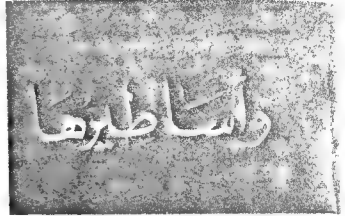 وأساطيرها